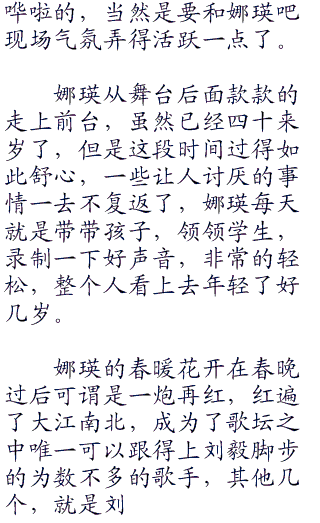 哗啦的，当然是要和娜瑛吧
现场气氛弄得活跃一点了。
娜瑛从舞台后面款款的
走上前台，虽然已经四十来
岁了，但是这段时间过得如
此舒心，一些让人讨厌的事
情一去不复返了，娜瑛每天
就是带带孩子，领领学生，
录制一下好声音，非常的轻
松，整个人看上去年轻了好
几岁。
娜瑛的春暖花开在春晚
过后可谓是一炮再红，红遍
了大江南北，成为了歌坛之
中唯一可以跟得上刘毅脚步
的为数不多的歌手，其他几
个，就是刘